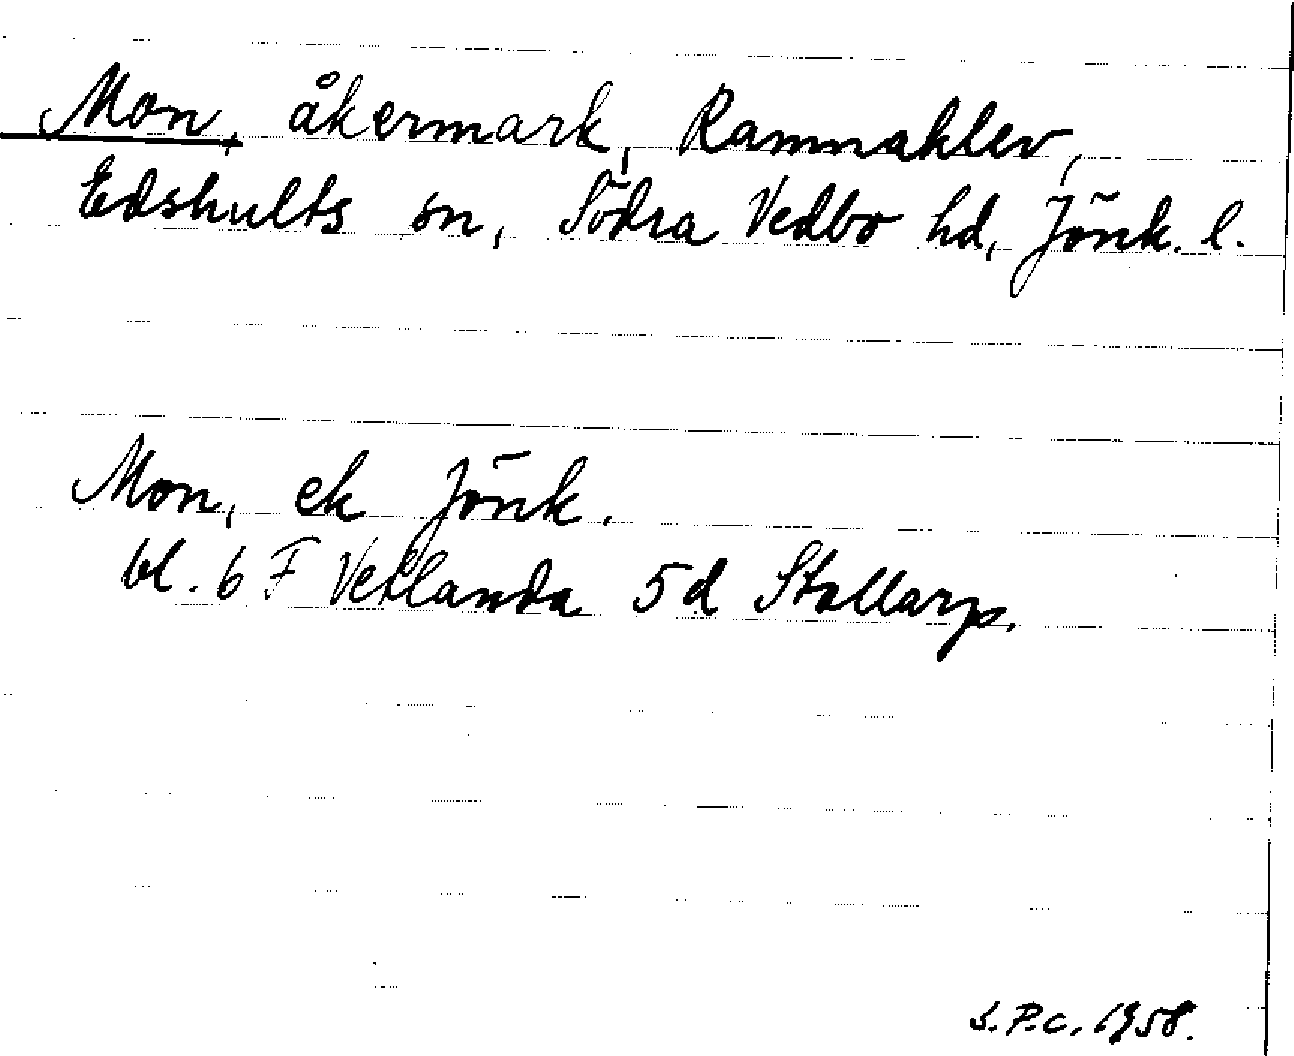 Mon, åkermark, Ramnaklev,
Edshults sn, Södra Vedbo hd, Jönk. l.
Mon, ek Jönk.
bl. 6 F Vetlanda 5d Stallarp.
S.P.c. 1958.